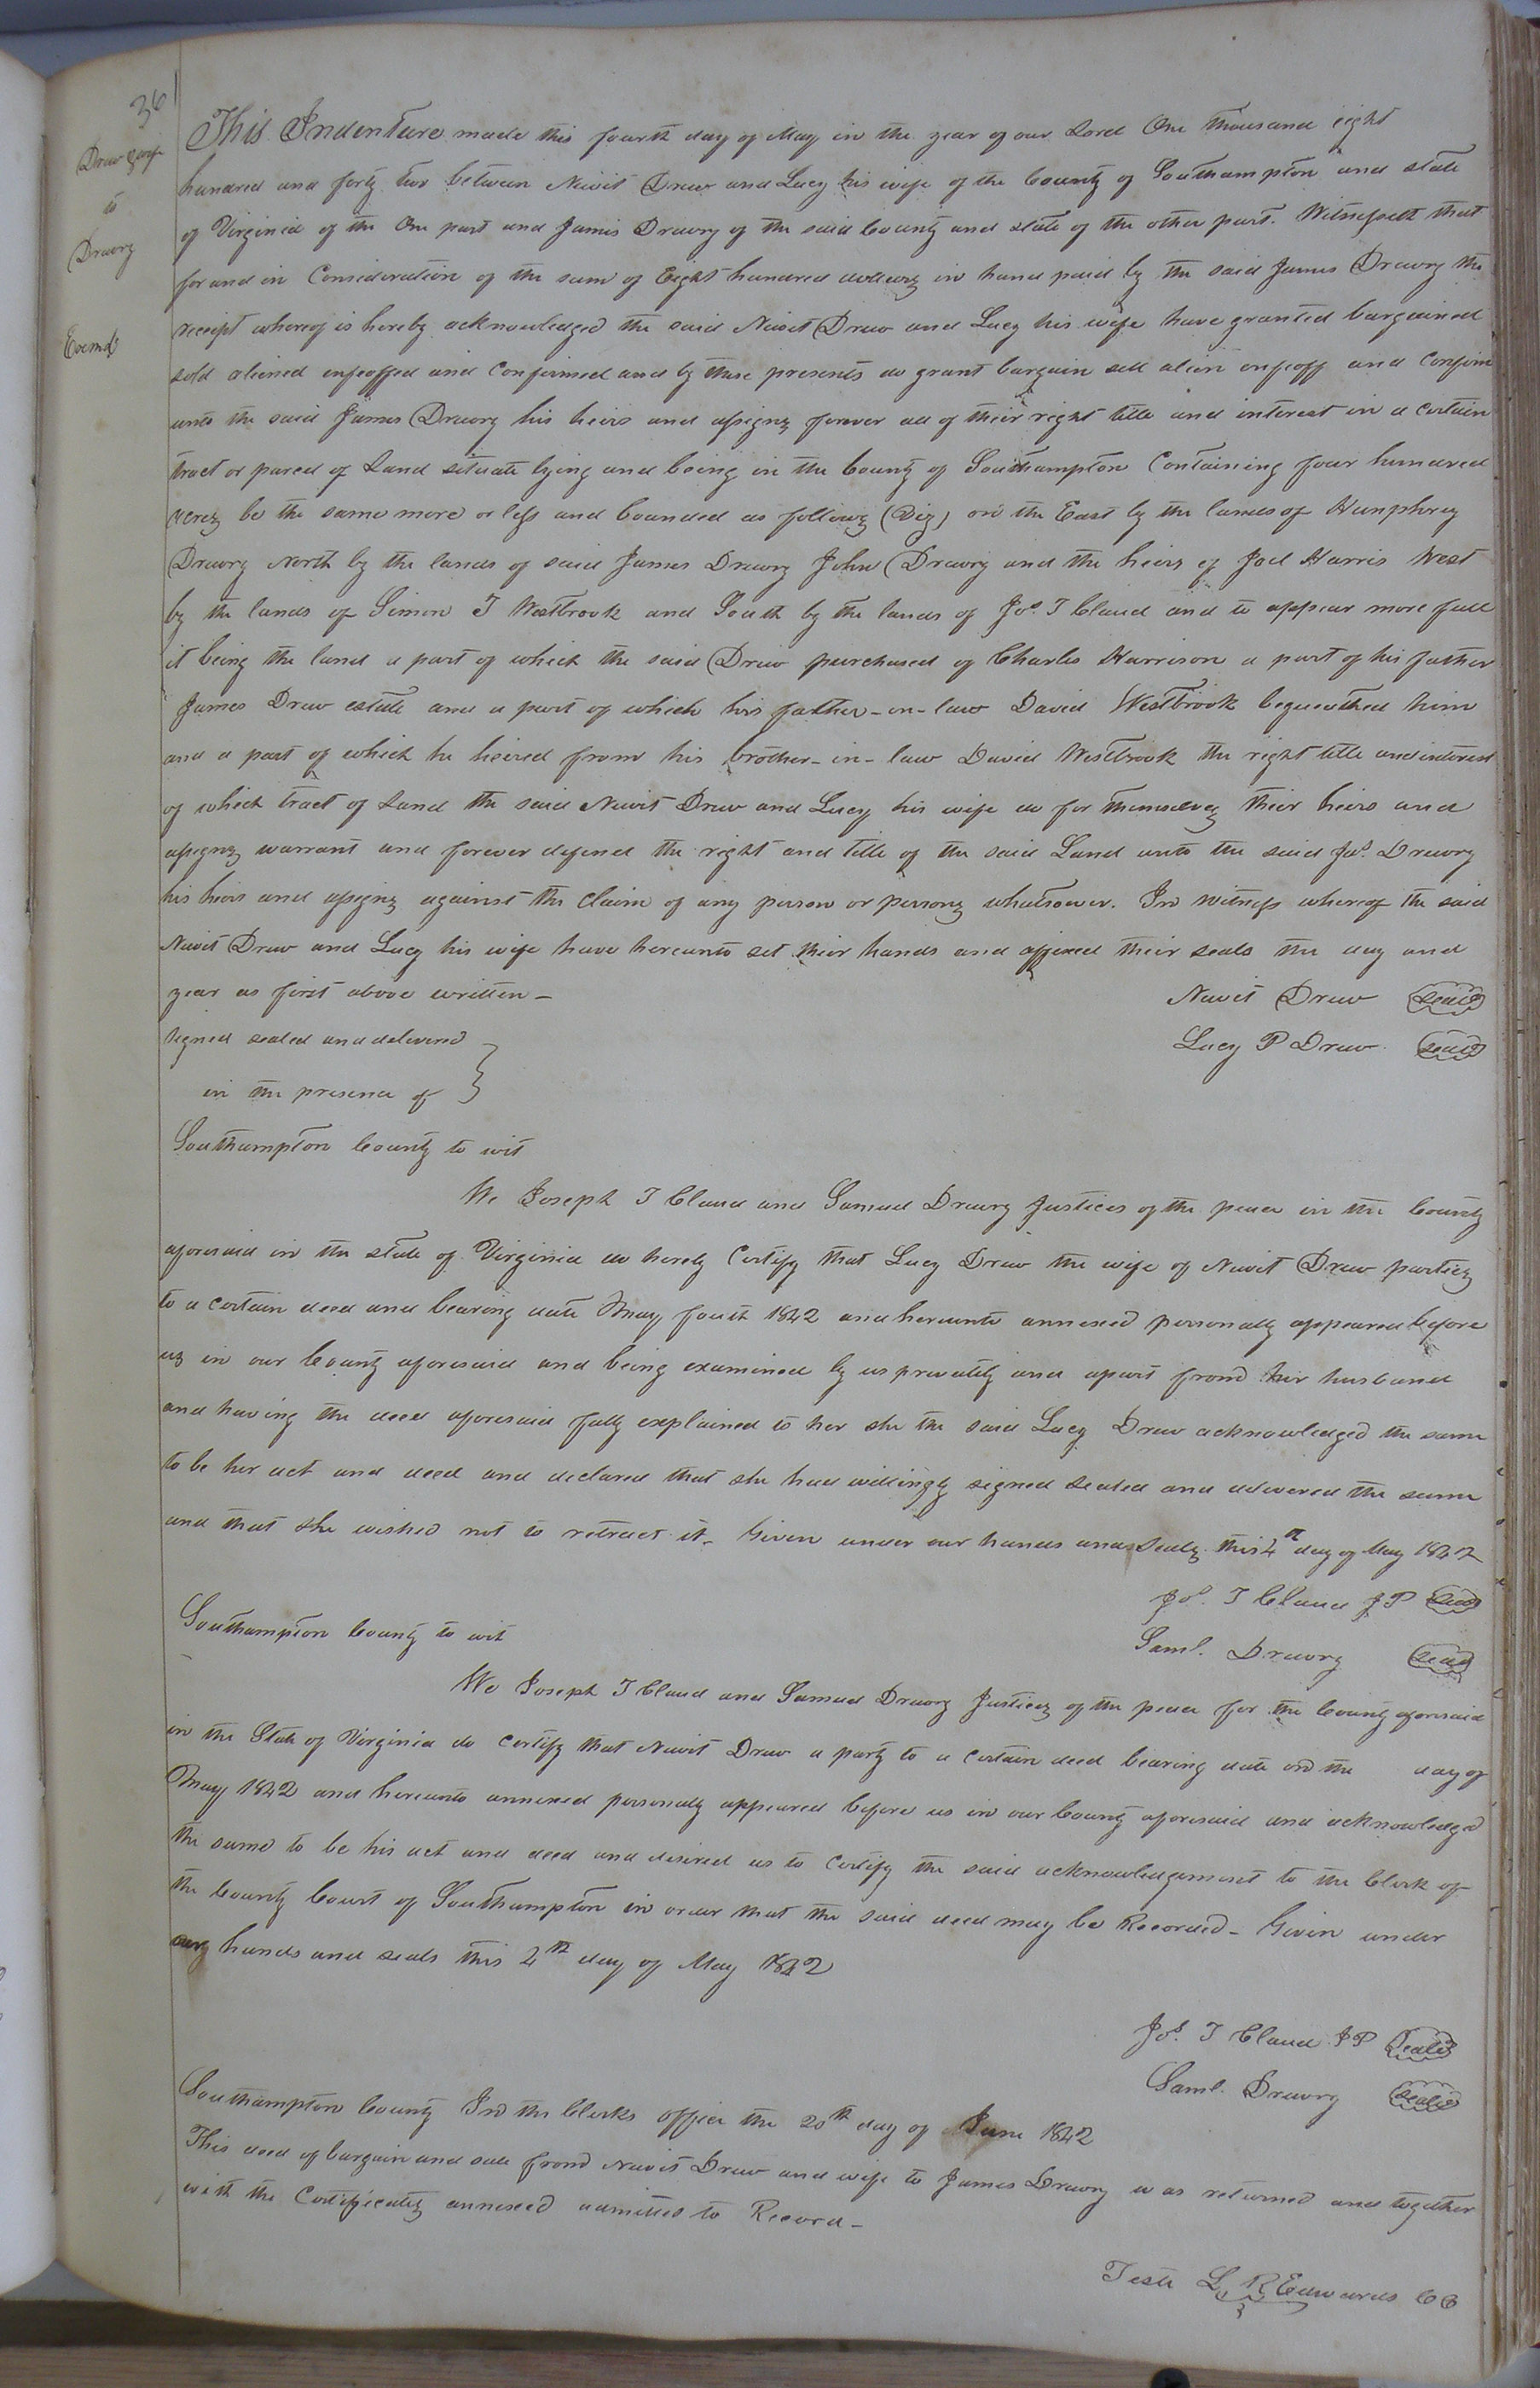 36
Drew & wife
to
Drewry
Exemd
This Indenture made this fourth day of May in the year of our Lord One thousand eight
hundred and forty two between Newit Drew and Lucy his wife of the County of Southampton and state
of Virginia of the One part and James Drewry of the said County and state of the other part. Witnesseth that
for and in Consideration of the sum of Eight hundred dollars in hand paid by the said James Drewry the
receipt whereof is hereby acknowledged the said Newit Drew and Lucy his wife have granted bargained
sold aliened enfeoffed and Confirmed and by these presents do grant bargain sell alien enfeoff and Confirm
unto the said James Drewry his heirs and assigns forever all of their right title and interest in a certain
tract or parcel of Land situate lying and being in the County of Southampton Containing four hundred
acres be the same more or less and bounded as follows (Viz) on the East by the lands of Humphrey
Drewry North by the lands of said James Drewry John Drewry and the heirs of Joel Harris West
by the lands of Simon T Westbrook and South by the lands of Jos. T Claud and to appear more full
it being the land a part of which the said Drew purchased of Charles Harrison a part of his father
James Drew estate and a part of which his father-in-law David Westbrook bequeathed him
and a part of which he heired from his brother-in-law David Westbrook the right title and interest
of which tract of Land the said Newit Drew and Lucy his wife do for themselves their heirs and
assigns warrant and forever defend the right and title of the said Land unto the said Jas. Drewry
his heirs and assigns against the claim of any person or persons whatsoever. In witness whereof the said
Newit Drew and Lucy his wife have hereunto set their hands and affixed their seals the day and
year as first above written -
Newit Drew Seal
signed sealed and delivered
Lucy P Drew Seal
in the presence of
Southampton County to wit
We Joseph T Claud and Samuel Drewry Justices of the peace in the County
aforesaid in the state of Virginia do hereby Certify that Lucy Drew the wife of Newit Drew parties
to a certain deed and bearing date May fouth 1842 and hereunto annexed personally appeared before
us in our County aforesaid and being examined by us privately and apart from her husband
and having the deed aforesaid fully explained to her she the said Lucy Drew acknowledged the same
to be her act and deed and declared that she had willingly signed sealed and delivered the same
and that she wished not to retract it. Given under our hands and Seals this 4th day of May 1842
Jos. T Claud JP Seal
Southampton County to wit
Saml. Drewry Seal
We Joseph T Claud and Samuel Drewry Justices of the peace for the County aforesaid
in the State of Virginia do certify that Newit Drew a party to a certain deed bearing date on the day of
May 1842 and hereunto annexed personally appeared before us in our County aforesaid and acknowledged
the same to be his act and deed and desired us to certify the said acknowledgement to the Clerk of
the County Court of Southampton in order that the said deed may be Recorded - Given under
our hands and seals this 4th day of May 1842
Jos. T Claud JP Seal
Saml. Drewry Seal
Southampton County In the Clerks office the 20th day of June 1842
This deed of bargain and sale from Newit Drew and wife to James Drewry was returned and together
with the Certificates annexed admitted to Record -
Teste L R Edwards CC